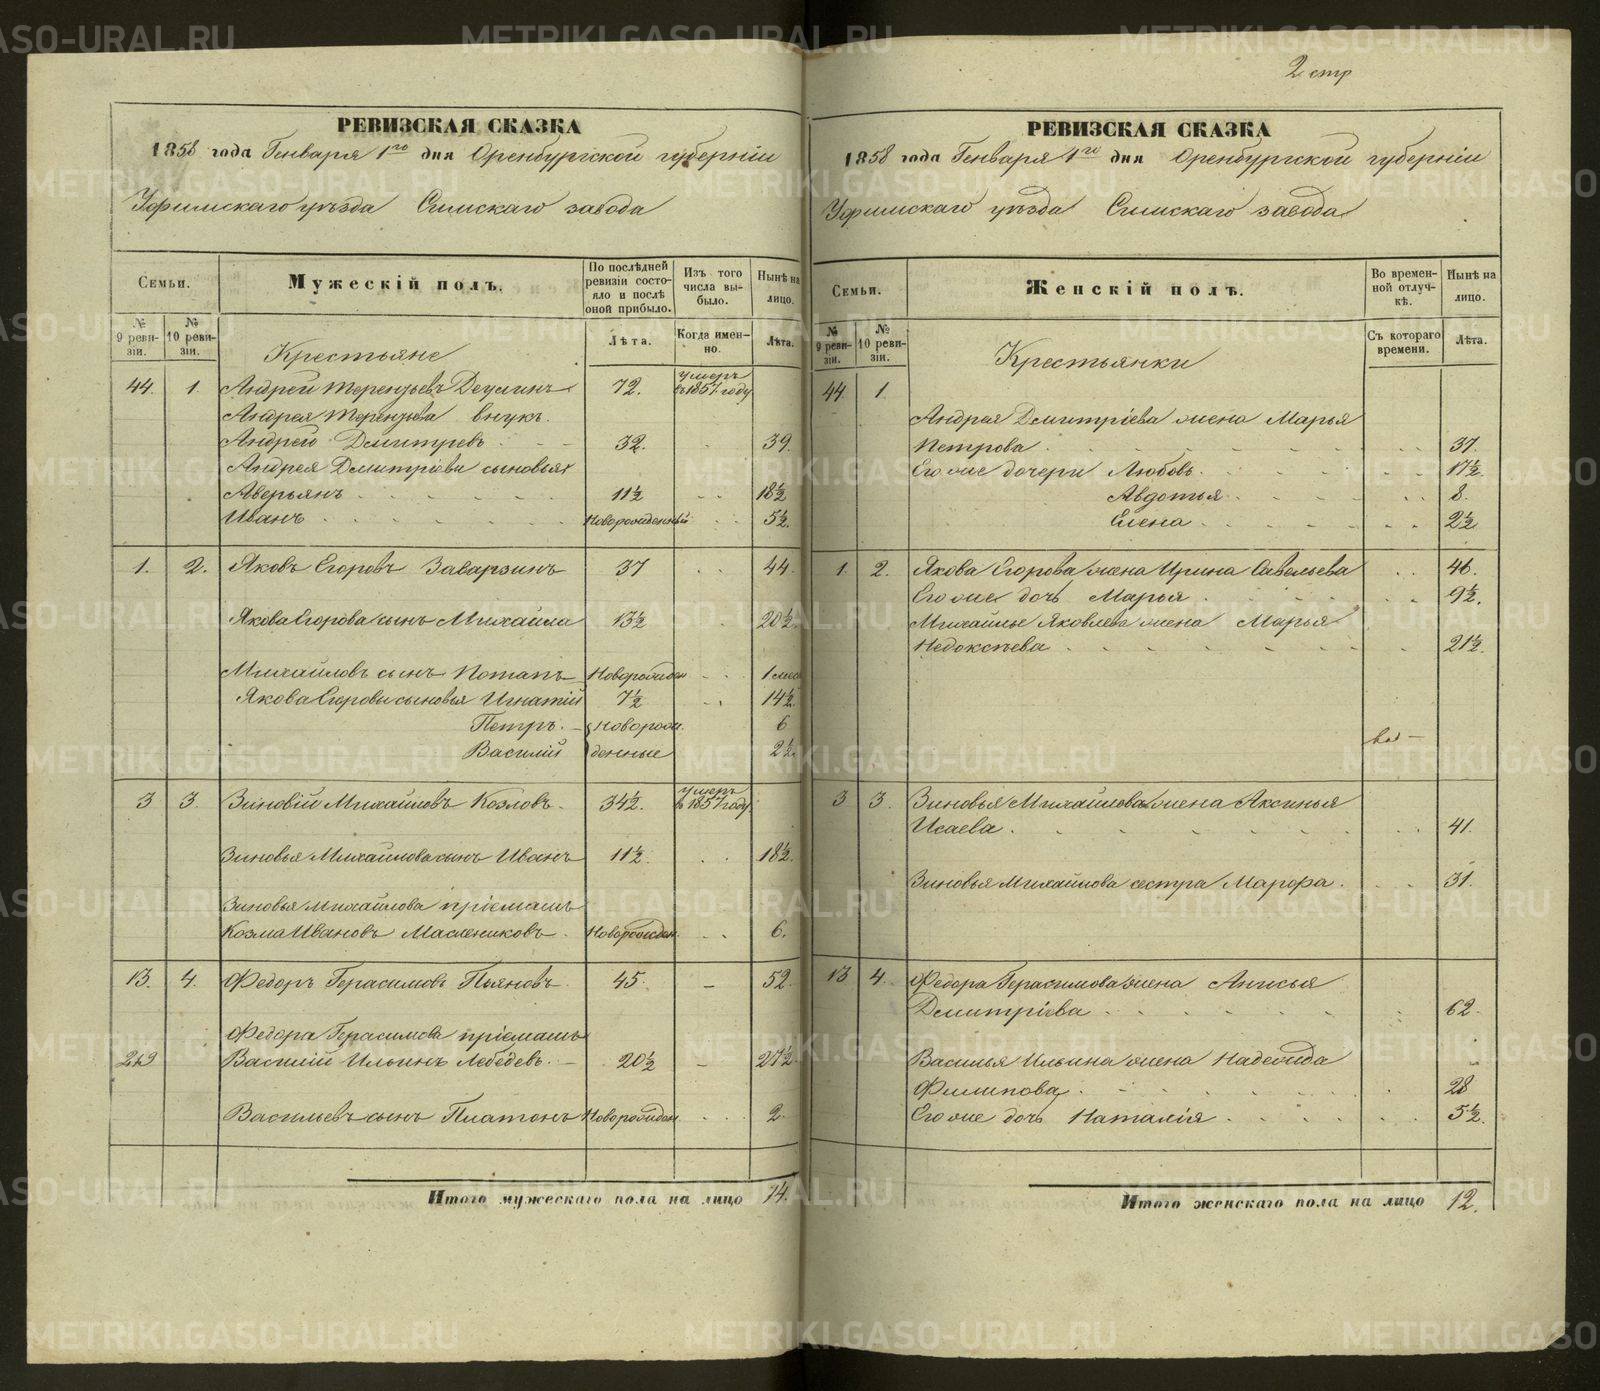 2 стр
РЕВИЗСКАЯ СКАЗКА
1858 года Генваря 1го дня Оренбургской губерніи
Уфимскаго уѣзда Симскаго завода
Семьи.
Мужескій полъ.
По послѣдней ревизіи состояло и послѣ оной прибыло.
Изъ того числа выбыло.
Нынѣ на лицо.
№ 9 ревизіи.
№ 10 ревизіи.
Лѣта.
Когда именно.
Лѣта.
Крестьяне
44. 1. Андрей Терентьевъ 72. умеръ въ 1857 году
Андрея Терентьева внукъ.
Андрей Дмитріевъ 32. 39.
Андрея Дмитріева сыновья
Аверьянъ 11½ 18½
Иванъ Новорожденный 5½
1. 2. Яковъ Егоровъ Заварзинъ 37 44.
Якова Егорова сынъ Михайла 13½ 20½
Михайловъ сынъ Потапъ Новорожден 1 мес
Якова Егорова сыновья Игнатій 7½ 14½
Петръ Новорож 6
Василій денные 2½
3 3. Зиновій Михайловъ Козловъ 34½. умеръ въ 1857 году.
Зиновья Михайлова сынъ Иванъ 11½ 18½
Зиновья Михайлова пріемышъ
Козма Ивановъ Маслениковъ Новорожден 6.
13. 4. Федоръ Герасимовъ Пьяновъ 45. 52.
Федора Герасимова пріемышъ
249 Василій Ильинъ Лебедевъ 20½ 27½
Васильевъ сынъ Платонъ Новорожден 2
Итого мужескаго пола на лицо 14.
РЕВИЗСКАЯ СКАЗКА
1858 года Генваря 1го дня Оренбургской губерніи
Уфимскаго уѣзда Симскаго завода
Семьи.
Женскій полъ.
Во временной отлучкѣ.
Нынѣ на лицо.
№ 9 ревизіи.
№ 10 ревизіи.
Съ котораго времени.
Лѣта.
Крестьянки
44 1
Андрея Дмитріева жена Марья
Петрова 37.
Его же дочери Любовь 17½
Авдотья 8.
Елена 2½
1 2. Якова Егорова жена Ирина Савельева 46.
Его же дочь Марья 9½.
Михайлы Яковлева жена Марья
21½
3 3. Зиновья Михайлова жена Аксинья
Исаева 41.
Зиновья Михайлова сестра Марфа 31.
13 4. Федора Герасимова жена Анисья
Дмитріева 62.
Василья Ильина жена Надежда
Филипова 28
Его же дочь Наталія 5½.
Итого женскаго пола на лицо 12.
METRIKI.GASO-URAL.RU